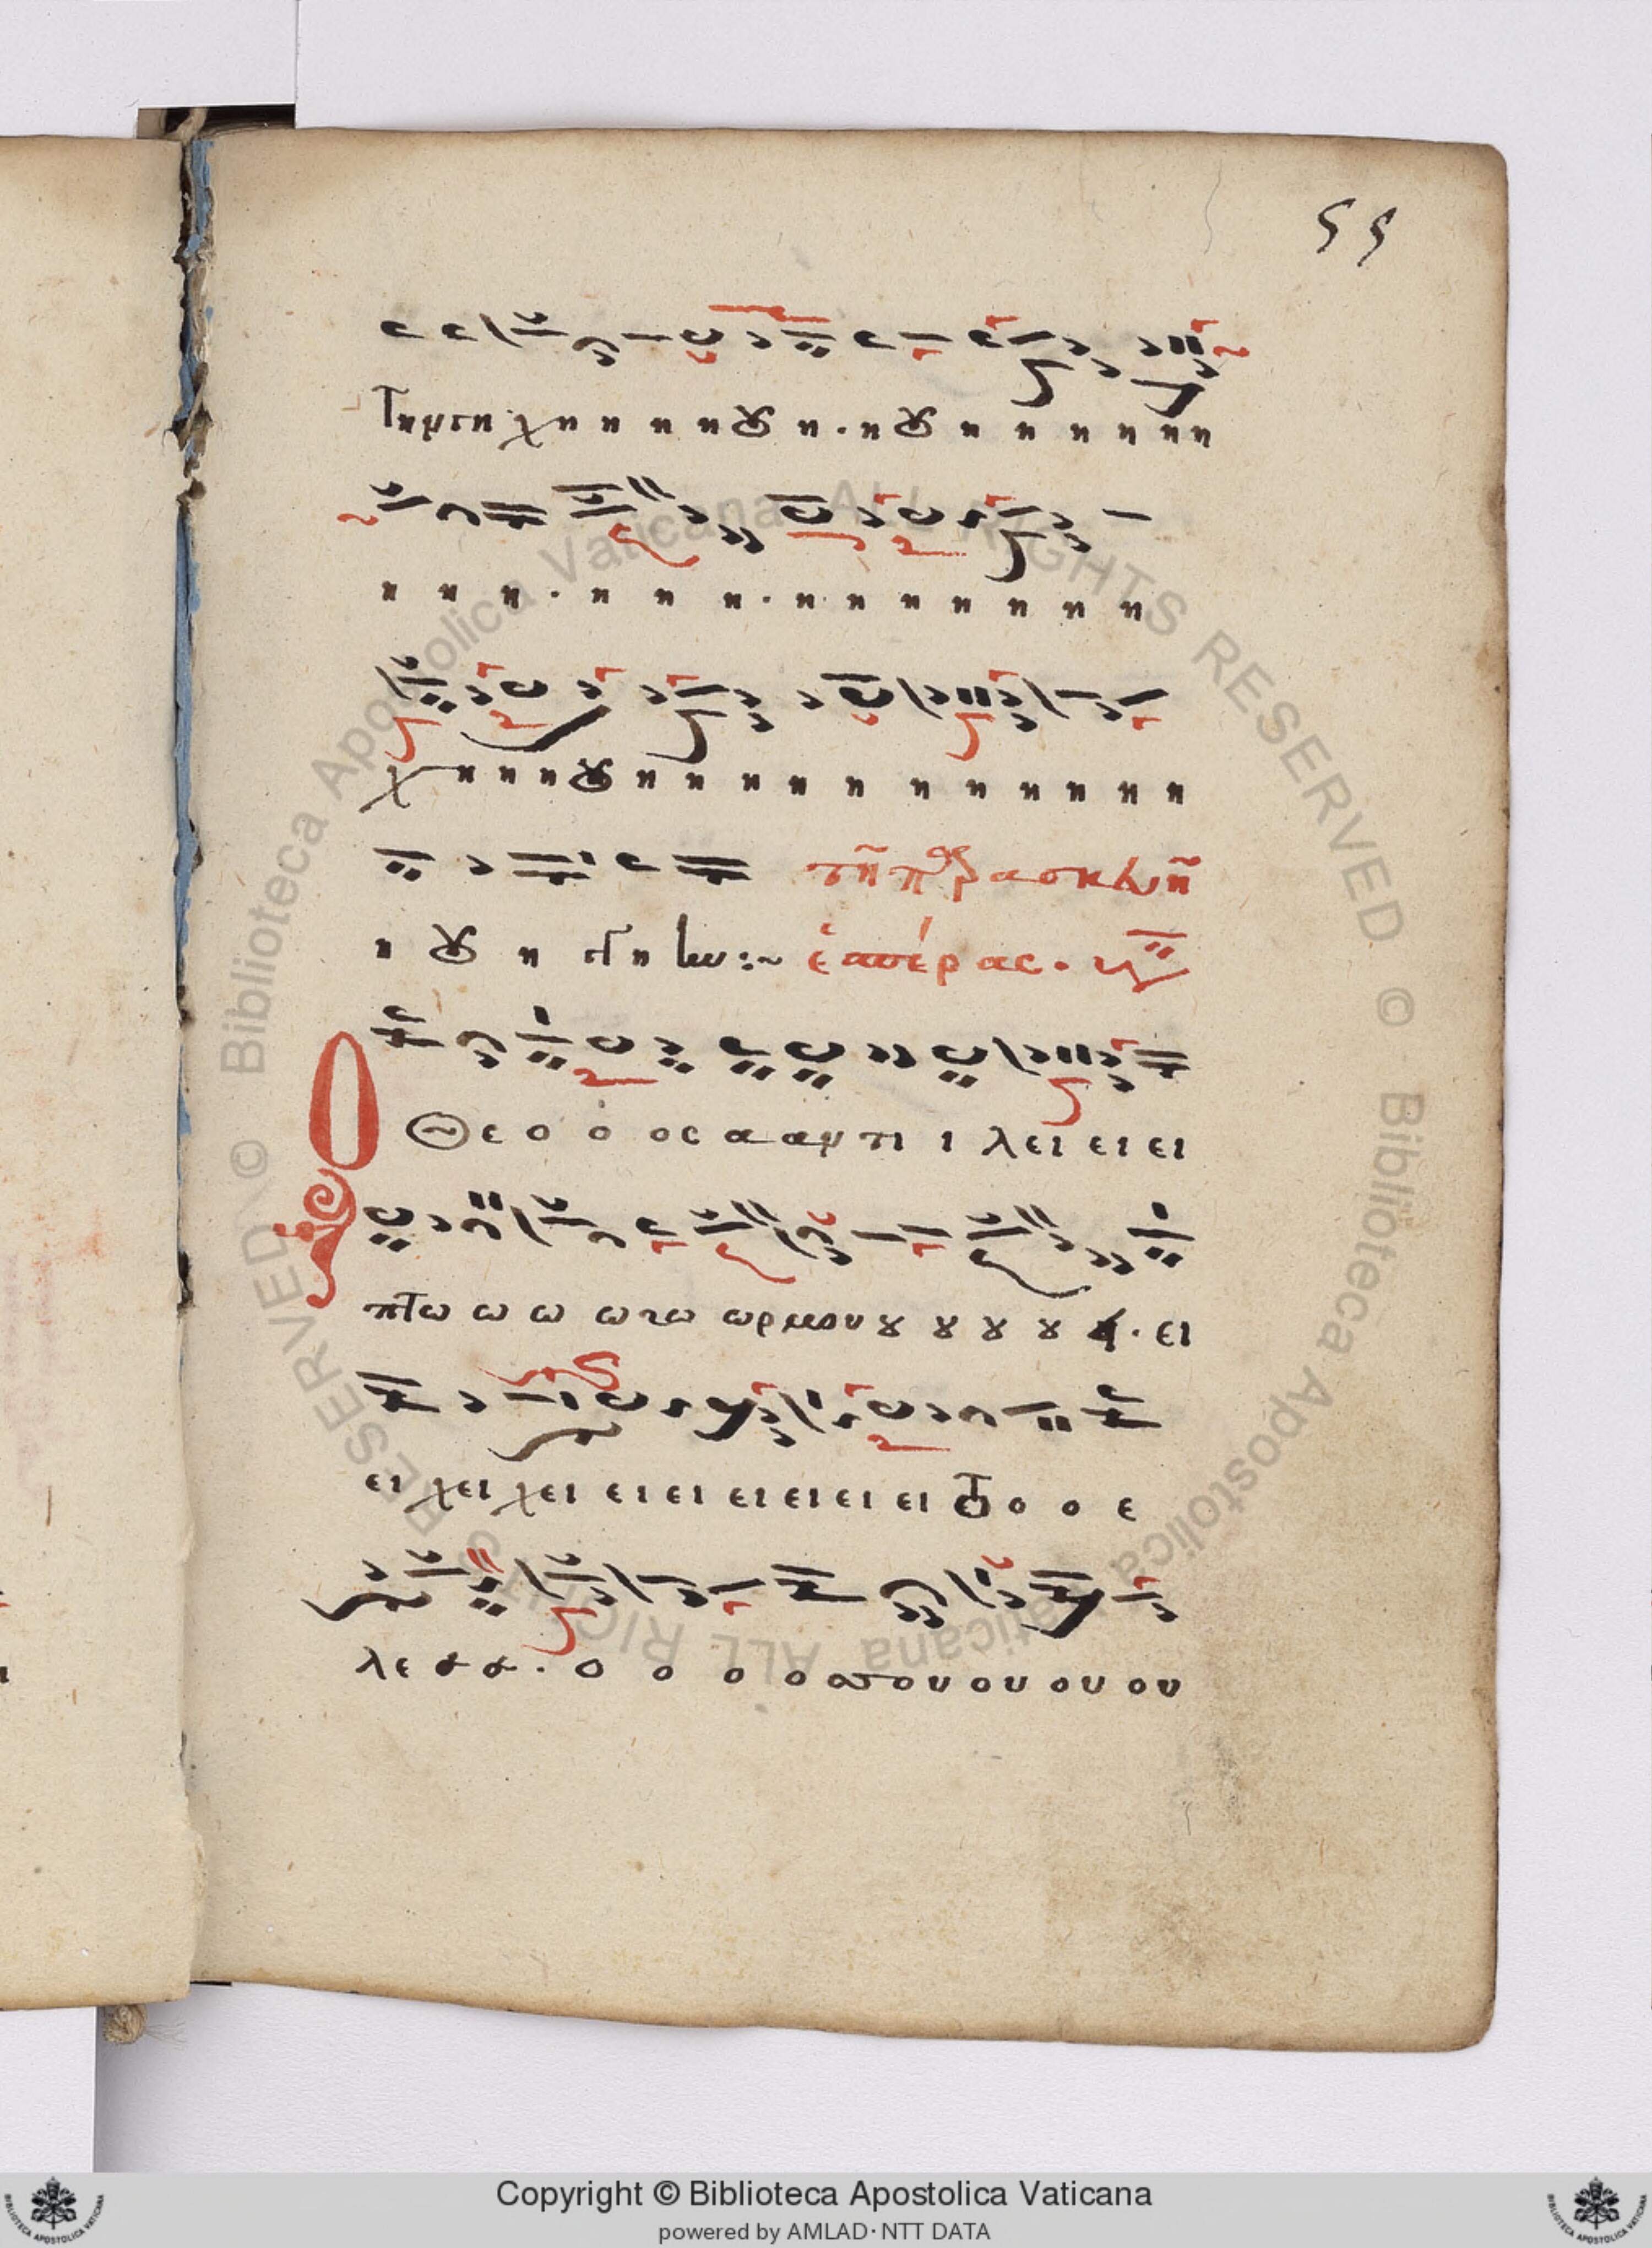 55
Τημτηχηηηηουη·ηουηηηηηη
ηηη·ηηη·ηηηηηηη
χηηηουηηηηηηηηηηη
τῆ παρασκευῆ
ηουητην:~ ἑσπέρας·
Ο Θεοοοσααντιιλειειει
πτωωωωτωωρμουουουουου·ει
ειχειχειειειειειειειτοοοε
λεαα·οοοοσπουουουου
© Biblioteca Apostolica Vaticana ALL RIGHTS RESERVED
© Biblioteca Apostolica Vaticana ALL RIGHTS RESERVED
Copyright © Biblioteca Apostolica Vaticana
powered by AMLAD·NTT DATA